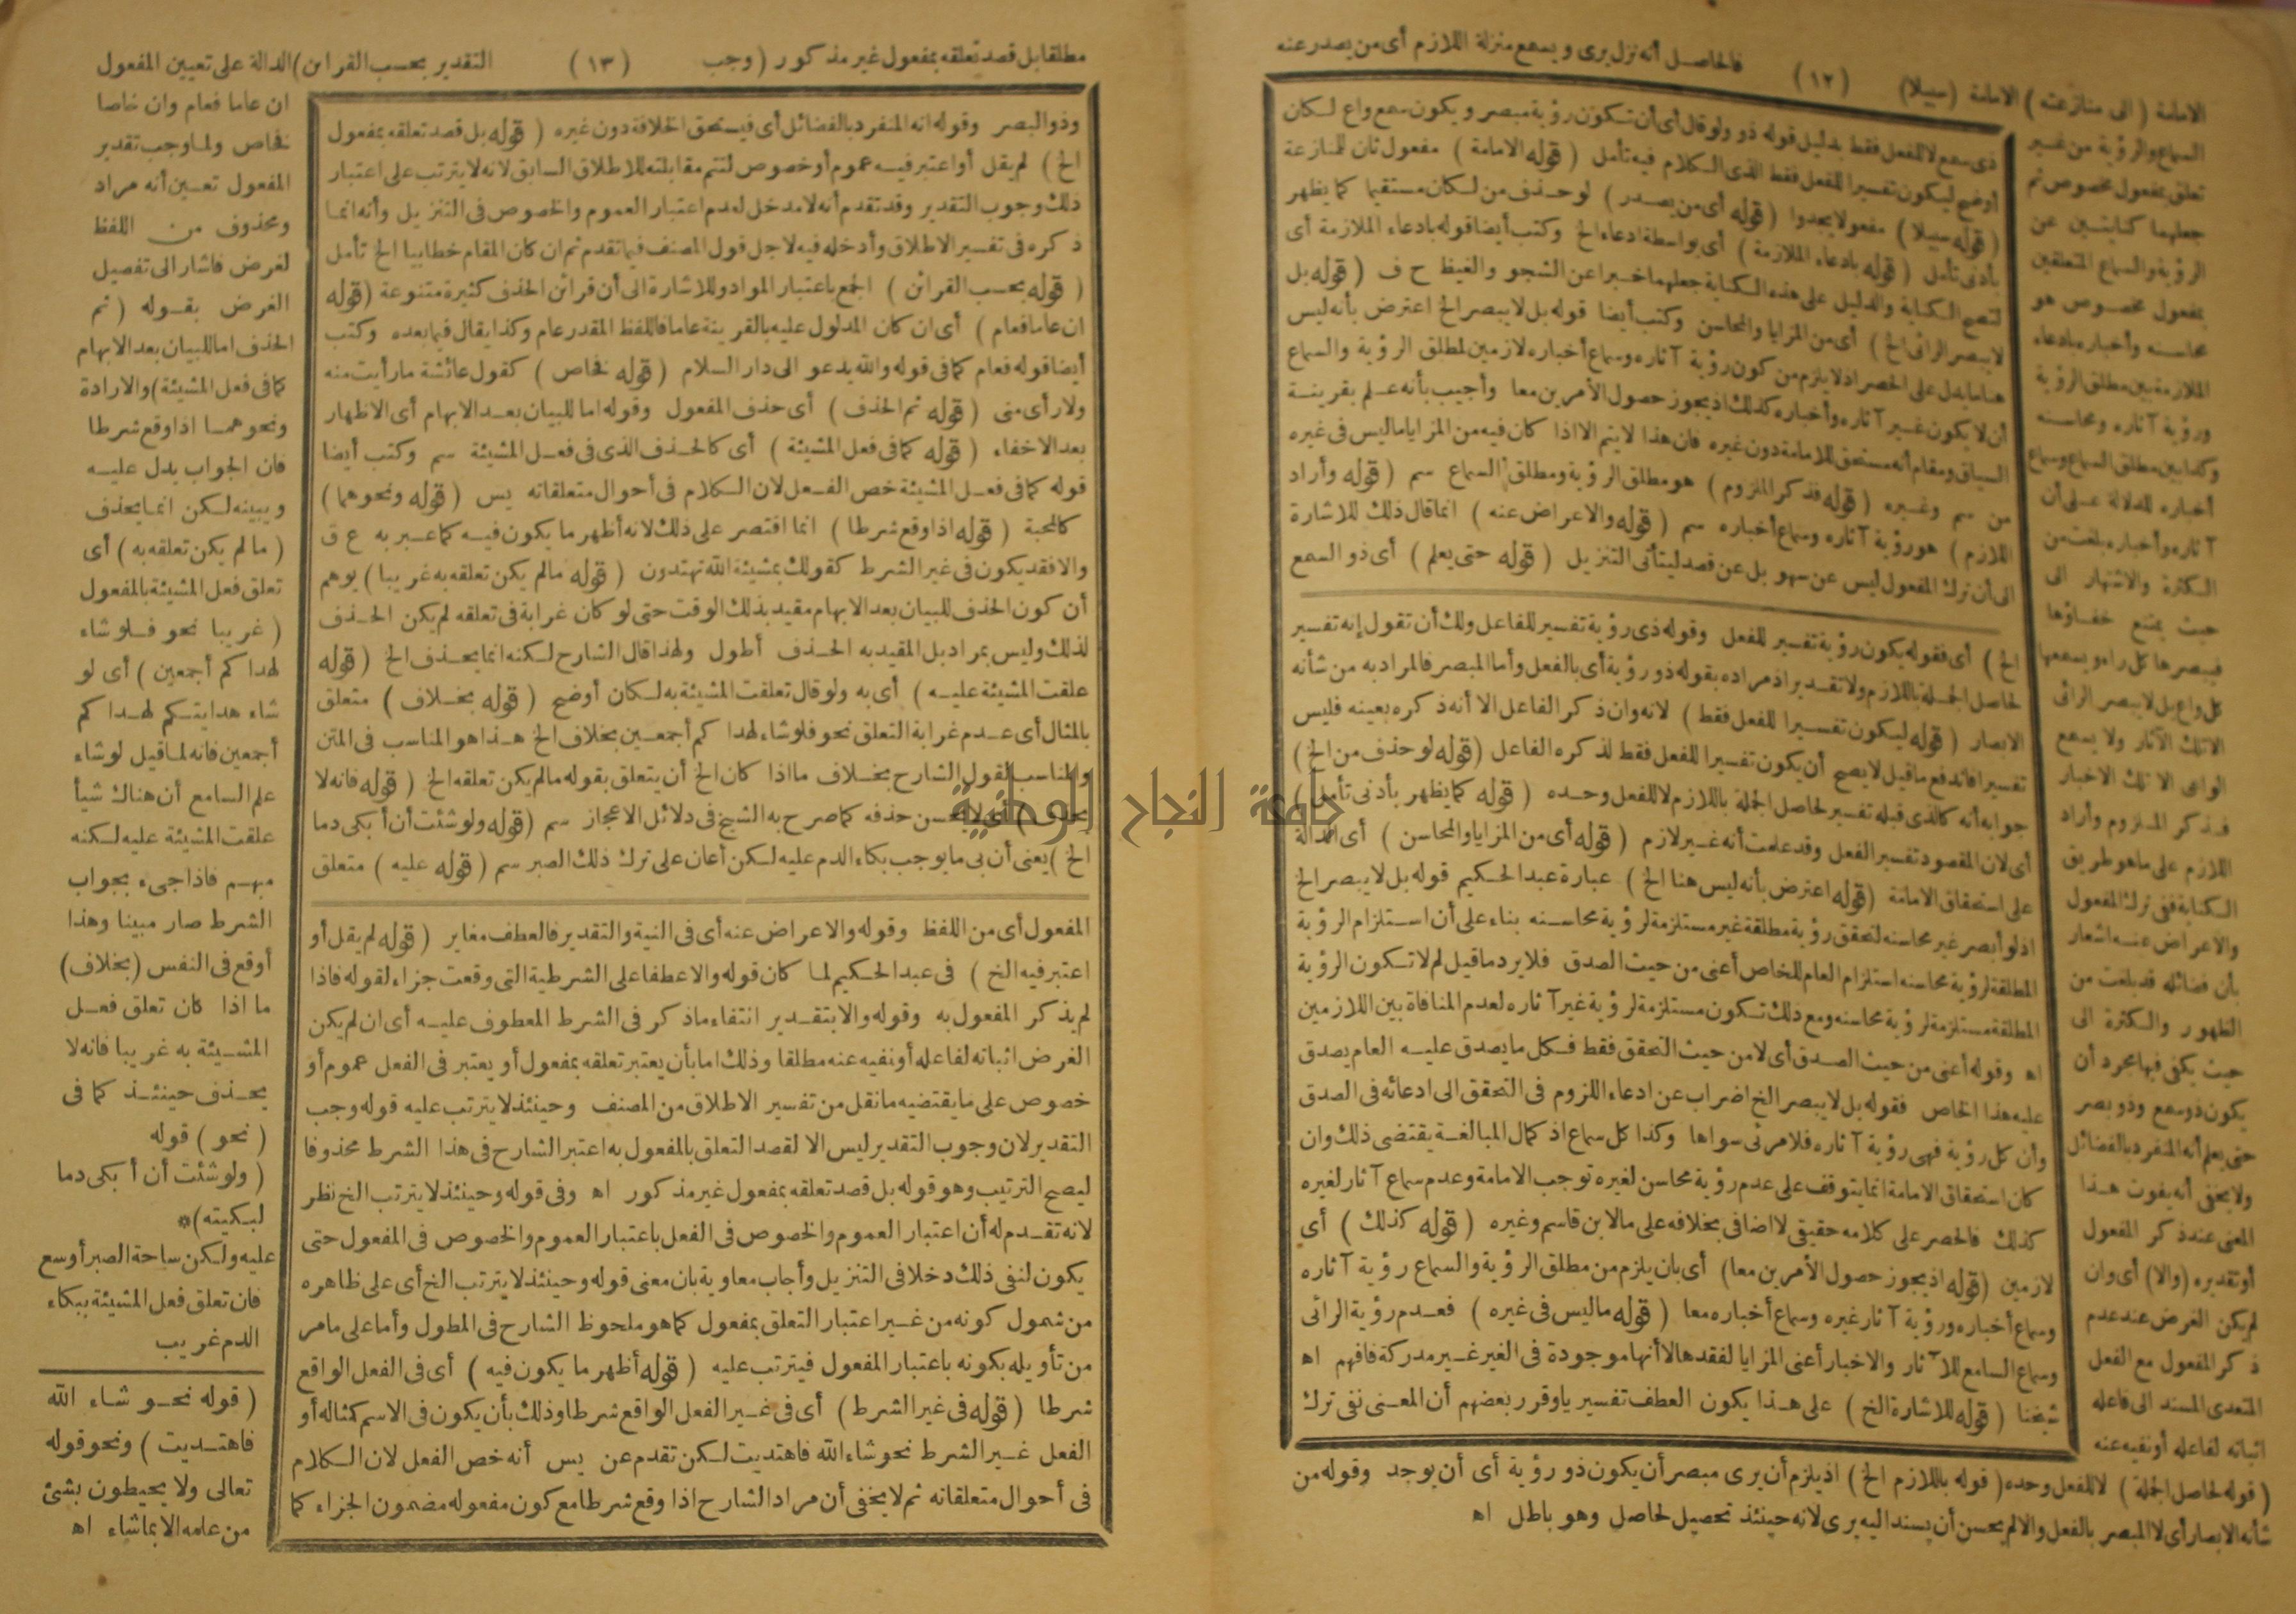 الامامة (الى منازعته) الامامة (سبيلا) (١٢) فالحاصل أنه نزل يرى ويسمع منزلة اللازم أى من يصدر عنه
السماع والرؤية من غير
تعلق بمفعول مخصوص ثم
جعلهما كنايتين عن
الرؤية والسماع المتعلقين
بمفعول مخصوص هو
محاسنه وأخباره بادعاء
الملازمة بين مطلق الرؤية
ورؤية آثاره ومحاسنه
وكذا بين مطلق السماع وسماع
أخباره للدلالة على أن
آثاره وأخباره بلغت من
الكثرة والاشتهار الى
حيث يمتنع خفاؤها
فيبصرها كل راء ويسمعها
كل واع بل لا يبصر الرائى
الا تلك الآثار ولا يسمع
الواعى الا تلك الاخبار
فذكر الملزوم وأراد
اللازم على ما هو طريق
الكناية ففى ترك المفعول
والاعراض عنه اشعار
بأن فضائله قد بلغت من
الظهور والكثرة الى
حيث يكفى فيها مجرد أن
يكون ذو سمع وذو بصر
حتى يعلم أنه المنفرد بالفضائل
ولا يخفى أنه يفوت هذا
المعنى عند ذكر المفعول
أو تقديره (والا) أى وان
لم يكن الغرض عند عدم
ذكر المفعول مع الفعل
المتعدى المسند الى فاعله
اثباته لفاعله أو نفيه عنه
ذى سمع لا للفعل فقط بدليل قوله ذو ولو قال أى أن تكون رؤية مبصر ويكون سمع واع لكان
أوضح ليكون تفسيرا للفعل فقط الذى الكلام فيه تأمل (قوله الامامة) مفعول ثان للمنازعة
(قوله سبيلا) مفعول يجدوا (قوله أى من يصدر) لو حذف من لكان مستقيما كما يظهر
بأدنى تأمل (قوله بادعاء الملازمة) أى بواسطة ادعاء الخ وكتب أيضا قوله بادعاء الملازمة أى
لتصح الكناية والدليل على هذه الكناية جعلهما خبرا عن الشجو والغيظ ح ف (قوله بل
لا يبصر الرائى الخ) أى من المزايا والمحاسن وكتب أيضا قوله بل لا يبصر الخ اعترض بأنه ليس
هنا ما يدل على الحصر اذ لا يلزم من كون رؤية آثاره وسماع أخباره لازمين لمطلق الرؤية والسماع
أن لا يكون غير آثاره وأخباره كذلك اذ يجوز حصول الأمرين معا وأجيب بأنه علم بقرينة
السياق ومقام أنه مستحق للامامة دون غيره فان هذا لا يتم الا اذا كان فيه من المزايا ما ليس فى غيره
من سم وغيره (قوله فذكر الملزوم) هو مطلق الرؤية ومطلق السماع سم (قوله وأراد
اللازم) هو رؤية آثاره وسماع أخباره سم (قوله والاعراض عنه) انما قال ذلك للاشارة
الى أن ترك المفعول ليس عن سهو بل عن قصد ليتأتى التنزيل (قوله حتى يعلم) أى ذو السمع
الخ) أى فقوله يكون رؤية تفسير للفعل وقوله ذى رؤية تفسير للفاعل ولك أن تقول إنه تفسير
لحاصل الجملة باللازم ولا تقدير اذ مراده بقوله ذو رؤية أى بالفعل وأما المبصر فالمراد به من شأنه
الابصار (قوله ليكون تفسيرا للفعل فقط) لانه وان ذكر الفاعل الا أنه ذكره بعينه فليس
تفسيرا فاندفع ما قيل لا يصح أن يكون تفسيرا للفعل فقط لذكره الفاعل (قوله لو حذف من الخ)
جوابه أنه كالذى قبله تفسير لحاصل الجملة باللازم لا للفعل وحده (قوله كما يظهر بأدنى تأمل)
أى لان المقصود تفسير الفعل وقد علمت أنه غير لازم (قوله أى من المزايا والمحاسن) أى الدالة
على استحقاق الامامة (قوله اعترض بأنه ليس هنا الخ) عبارة عبد الحكيم قوله بل لا يبصر الخ
اذ لو أبصر غير محاسنه لتحقق رؤية مطلقة غير مستلزمة لرؤية محاسنه بناء على أن استلزام الرؤية
المطلقة لرؤية محاسنه استلزام العام للخاص أعنى من حيث الصدق فلا يرد ما قيل لم لا تكون الرؤية
المطلقة مستلزمة لرؤية محاسنه ومع ذلك تكون مستلزمة لرؤية غير آثاره لعدم المنافاة بين اللازمين
اه وقوله أعنى من حيث الصدق أى لا من حيث التحقق فقط فكل ما يصدق عليه العام يصدق
عليه هذا الخاص فقوله بل لا يبصر الخ اضراب عن ادعاء اللزوم فى التحقق الى ادعائه فى الصدق
وأن كل رؤية فهى رؤية آثاره فلا مرئى سواها وكذا كل سماع اذ كمال المبالغة يقتضى ذلك وان
كان استحقاق الامامة انما يتوقف على عدم رؤية محاسن لغيره توجب الامامة وعدم سماع آثار لغيره
كذلك فالحصر على كلامه حقيقى لا اضافى بخلافه على ما لابن قاسم وغيره (قوله كذلك) أى
لازمين (قوله اذ يجوز حصول الأمرين معا) أى بان يلزم من مطلق الرؤية والسماع رؤية آثاره
وسماع أخباره ورؤية آثار غيره وسماع أخباره معا (قوله ما ليس فى غيره) فعدم رؤية الرائى
وسماع السامع للآثار والاخبار أعنى المزايا لفقدها لا أنها موجودة فى الغير غير مدركة فافهم اه
شيخنا (قوله للاشارة الخ) على هذا يكون العطف تفسيريا وقرر بعضهم أن المعنى ففى ترك
(قوله لحاصل الجملة) لا للفعل وحده (قوله باللازم الخ) اذ يلزم أن يرى مبصر أن يكون ذو رؤية أى أن يوجد وقوله من
شأنه الابصار أى لا المبصر بالفعل والا لم يحسن أن يسند اليه يرى لانه حينئذ تحصيل لحاصل وهو باطل اه
مطلقا بل قصد تعلقه بمفعول غير مذكور (وجب (١٣) التقدير بحسب القرائن) الدالة على تعيين المفعول
ان عاما فعام وان خاصا
فخاص ولما وجب تقدير
المفعول تعين أنه مراد
ومحذوف من اللفظ
لغرض فاشار الى تفصيل
الغرض بقوله (ثم
الحذف اما للبيان بعد الابهام
كما فى فعل المشيئة) والارادة
ونحوهما اذا وقع شرطا
فان الجواب يدل عليه
ويبينه لكن انما يحذف
(ما لم يكن تعلقه به) أى
تعلق فعل المشيئة بالمفعول
(غريبا نحو فلو شاء
لهداكم أجمعين) أى لو
شاء هدايتكم لهداكم
أجمعين فانه لما قيل لو شاء
علم السامع أن هناك شيأ
علقت المشيئة عليه لكنه
مبهم فاذا جىء بجواب
الشرط صار مبينا وهذا
أوقع فى النفس (بخلاف)
ما اذا كان تعلق فعل
المشيئة به غريبا فانه لا
يحذف حينئذ كما فى
(نحو) قوله
(ولو شئت أن أبكى دما
لبكيته)*
عليه ولكن ساحة الصبر أوسع
فان تعلق فعل المشيئة ببكاء
الدم غريب
(قوله نحو شاء الله
فاهتديت) ونحو قوله
تعالى ولا يحيطون بشئ
من علمه الا بما شاء اه
وذو البصر وقوله انه المنفرد بالفضائل أى فيستحق الخلافة دون غيره (قوله بل قصد تعلقه بمفعول
الخ) لم يقل أو اعتبر فيه عموم أو خصوص لتتم مقابلته للاطلاق السابق لانه لا يترتب على اعتبار
ذلك وجوب التقدير وقد تقدم أنه لا مدخل لعدم اعتبار العموم والخصوص فى التنزيل وأنه انما
ذكره فى تفسير الاطلاق وأدخله فيه لاجل قول المصنف فيما تقدم ثم ان كان المقام خطابيا الخ تأمل
(قوله بحسب القرائن) الجمع باعتبار المواد وللاشارة الى أن قرائن الحذف كثيرة متنوعة (قوله
ان عاما فعام) أى ان كان المدلول عليه بالقرينة عاما فاللفظ المقدر عام وكذا يقال فيما بعده وكتب
أيضا قوله فعام كما فى قوله والله يدعو الى دار السلام (قوله فخاص) كقول عائشة ما رأيت منه
ولا رأى منى (قوله ثم الحذف) أى حذف المفعول وقوله اما للبيان بعد الابهام أى الاظهار
بعد الاخفاء (قوله كما فى فعل المشيئة) أى كالحذف الذى فى فعل المشيئة سم وكتب أيضا
قوله كما فى فعل المشيئة خص الفعل لان الكلام فى أحوال متعلقاته يس (قوله ونحوهما)
كالمحبة (قوله اذا وقع شرطا) انما اقتصر على ذلك لانه أظهر ما يكون فيه كما عبر به ع ق
والا فقد يكون فى غير الشرط كقولك بمشيئة الله تهتدون (قوله ما لم يكن تعلقه به غريبا) يوهم
أن كون الحذف للبيان بعد الابهام مقيد بذلك الوقت حتى لو كان غرابة فى تعلقه لم يكن الحذف
لذلك وليس بمراد بل المقيد به الحذف أطول ولهذا قال الشارح لكنه انما يحذف الخ (قوله
علقت المشيئة عليه) أى به ولو قال تعلقت المشيئة به لكان أوضح (قوله بخلاف) متعلق
بالمثال أى عدم غرابة التعلق نحو فلو شاء لهداكم أجمعين بخلاف الخ هذا هو المناسب فى المتن
والمناسب لقول الشارح بخلاف ما اذا كان الخ أن يتعلق بقوله ما لم يكن تعلقه الخ (قوله فانه لا
يحذف) أى لا يحسن حذفه كما صرح به الشيخ فى دلائل الاعجاز سم (قوله ولو شئت أن أبكى دما
الخ) يعنى أن بى ما يوجب بكاء الدم عليه لكن أعان على ترك ذلك الصبر سم (قوله عليه) متعلق
المفعول أى من اللفظ وقوله والاعراض عنه أى فى النية والتقدير فالعطف مغاير (قوله لم يقل أو
اعتبر فيه الخ) فى عبد الحكيم لما كان قوله والا عطفا على الشرطية التى وقعت جزاء لقوله فاذا
لم يذكر المفعول به وقوله والا بتقدير انتفاء ما ذكر فى الشرط المعطوف عليه أى ان لم يكن
الغرض اثباته لفاعله أو نفيه عنه مطلقا وذلك اما بأن يعتبر تعلقه بمفعول أو يعتبر فى الفعل عموم أو
خصوص على ما يقتضيه ما نقل من تفسير الاطلاق من المصنف وحينئذ لا يترتب عليه قوله وجب
التقدير لان وجوب التقدير ليس الا لقصد التعلق بالمفعول به اعتبر الشارح فى هذا الشرط محذوفا
ليصح الترتيب وهو قوله بل قصد تعلقه بمفعول غير مذكور اه وفى قوله وحينئذ لا يترتب الخ نظر
لانه تقدم له أن اعتبار العموم والخصوص فى الفعل باعتبار العموم والخصوص فى المفعول حتى
يكون لنفى ذلك دخلا فى التنزيل وأجاب معاوية بان معنى قوله وحينئذ لا يترتب الخ أى على ظاهره
من شمول كونه من غير اعتبار التعلق بمفعول كما هو ملحوظ الشارح فى المطول وأما على ما مر
من تأويله بكونه باعتبار المفعول فيترتب عليه (قوله أظهر ما يكون فيه) أى فى الفعل الواقع
شرطا (قوله فى غير الشرط) أى فى غير الفعل الواقع شرطا وذلك بأن يكون فى الاسم كمثاله أو
الفعل غير الشرط نحو شاء الله فاهتديت لكن تقدم عن يس أنه خص الفعل لان الكلام
فى أحوال متعلقاته ثم لا يخفى أن مراد الشارح اذا وقع شرطا مع كون مفعوله مضمون الجزاء كما
جامعة النجاح الوطنية